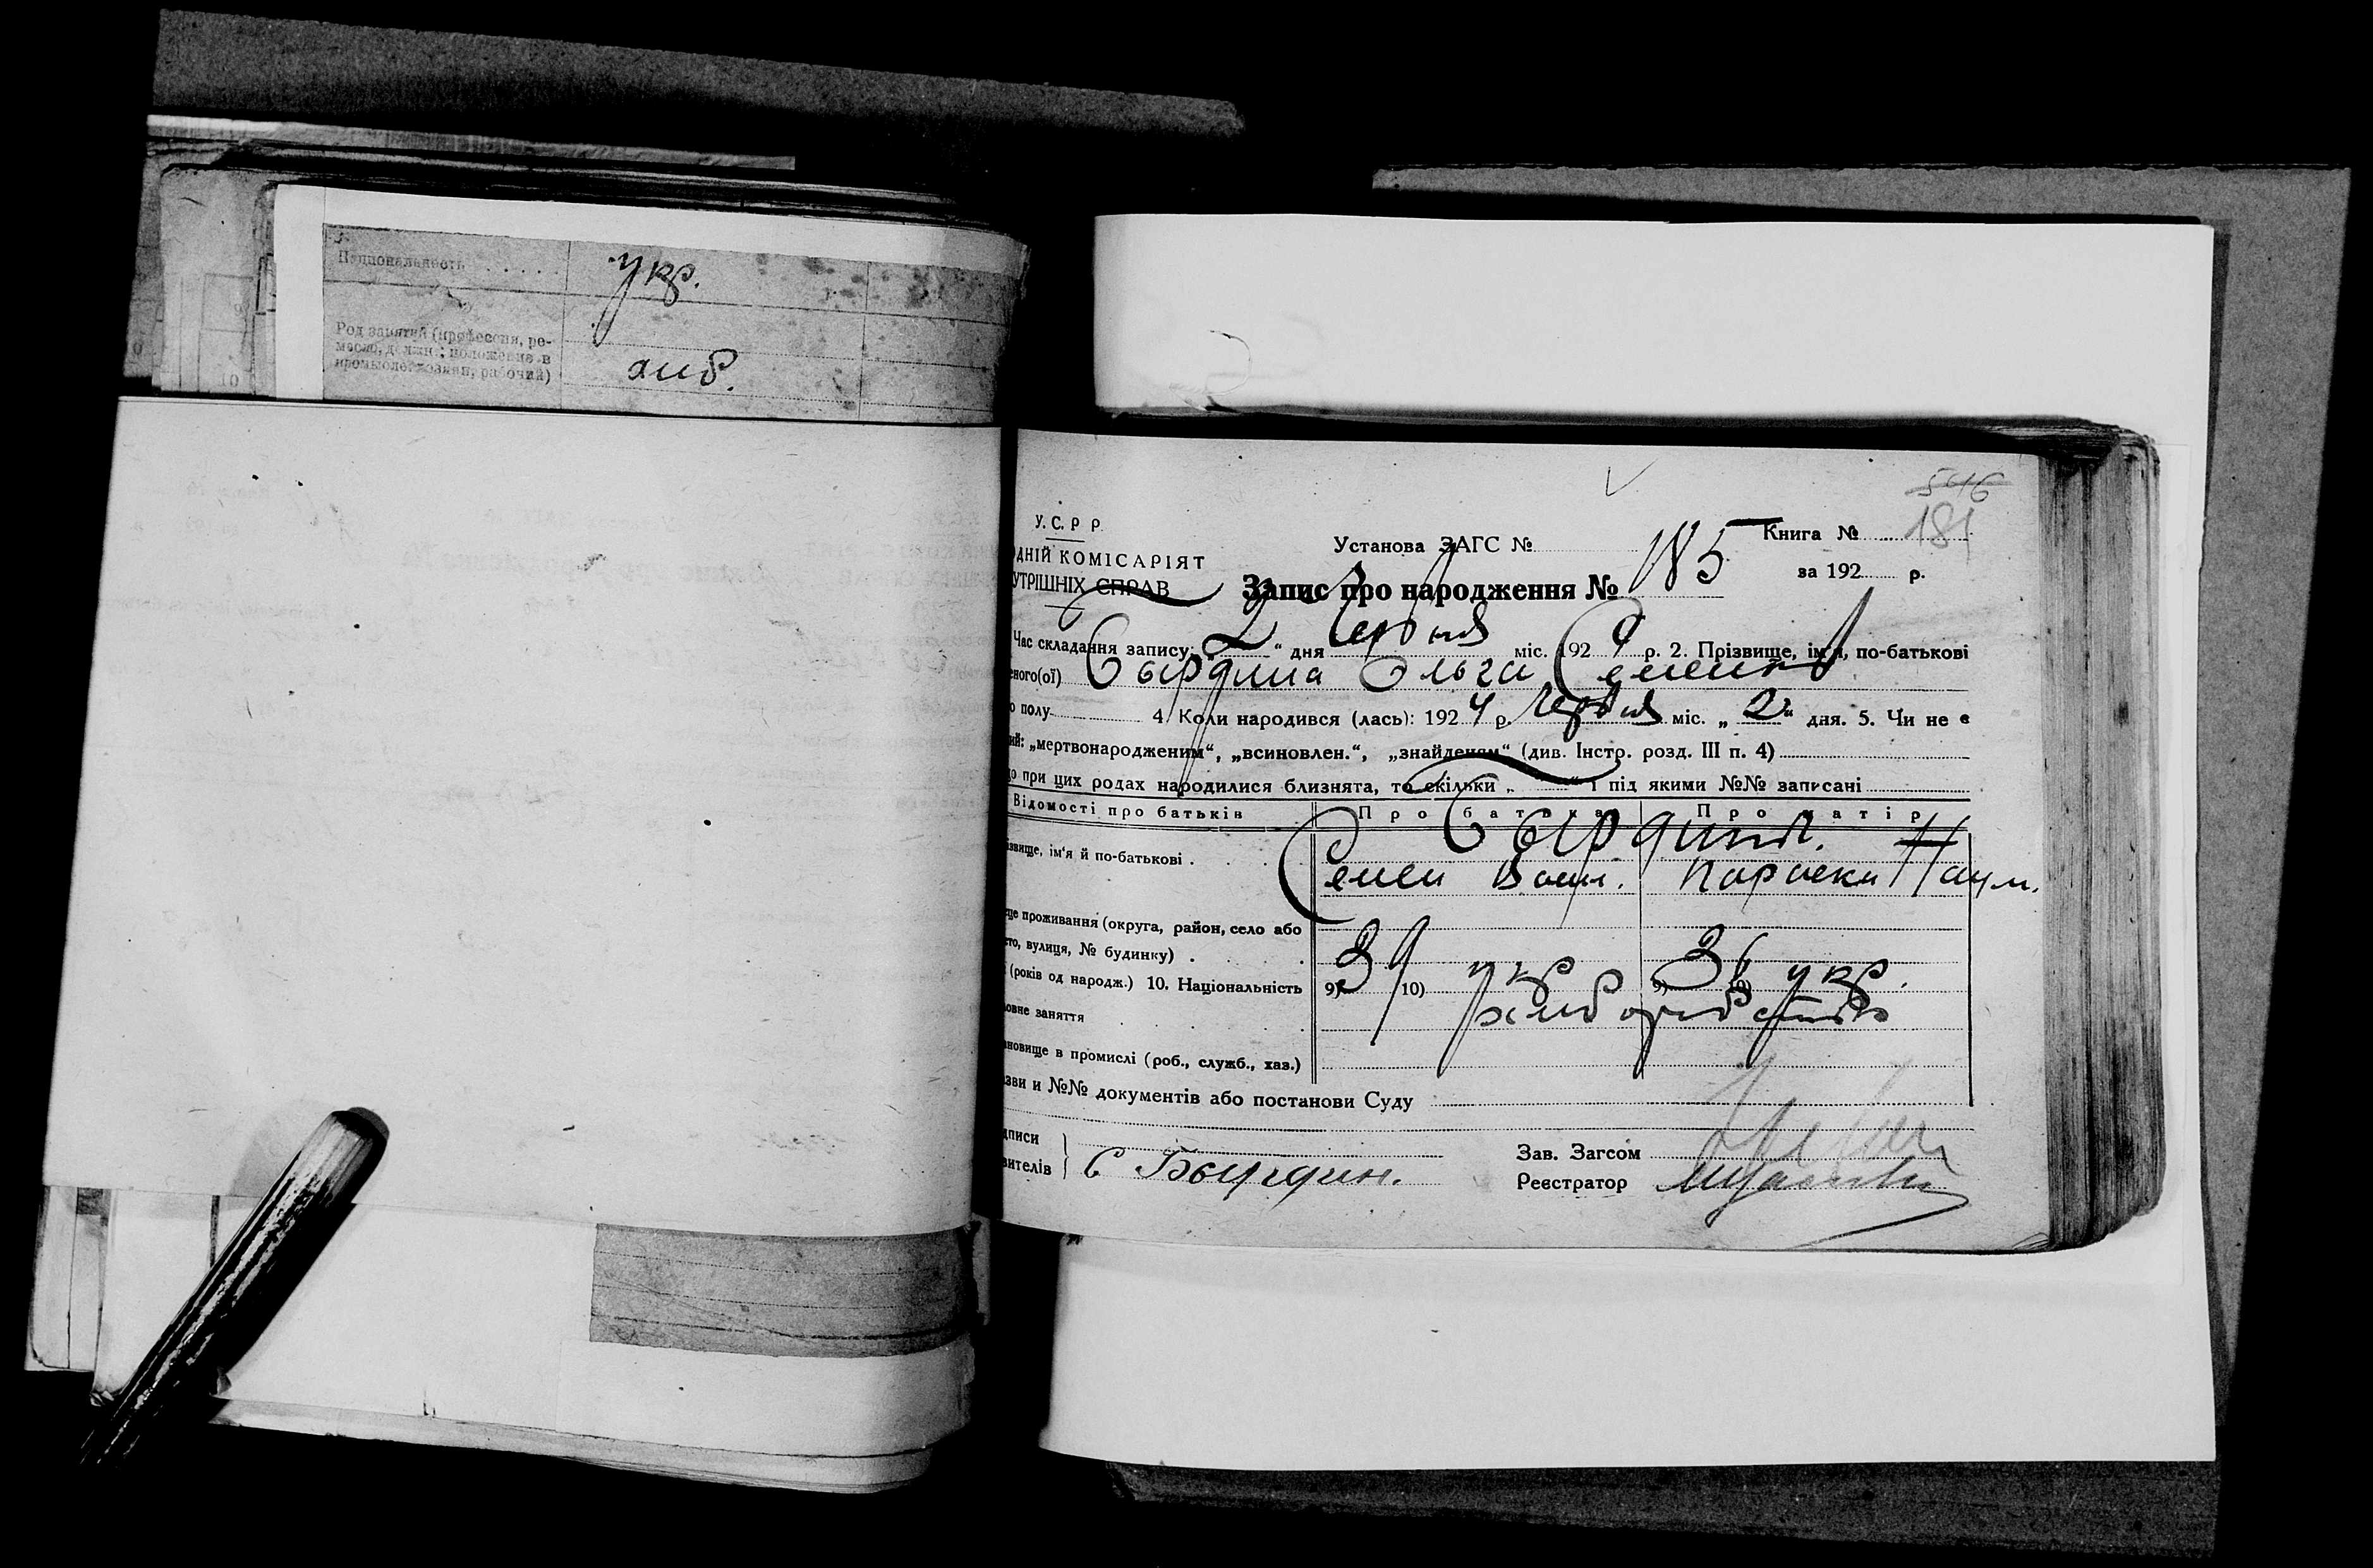 Национальность . . . . . укр.
Род занятий (профессия, ре-
месло, должн.; положение в
промысле: хозяин, рабочий) хліб.
546
У. С. Р. Р.
Установа ЗАГС №
Книга № 181
ДНІЙ КОМІСАРІЯТ
УТРІШНІХ СПРАВ
за 192 р.
Запис про народження № 185
Час складання запису: „2“ дня Червня міс. 1924 р. 2. Прізвище, ім'я, по-батькові
еного(ої) Бырдина Ольга Семенов
о полу 4. Коли народився (лась): 1924 р. Червня міс. „2“ дня. 5. Чи не є
ий: „мертвонародженим“, „всиновлен.“, „знайденим“ (див. Інстр. розд. III п. 4)
о при цих родах народилися близнята, то скільки „ “ і під якими №№ записані
Відомості про батьків Про батька Про матір
Бырдины.
ізвище, ім'я й по-батькові . Семен Васил. Параска Наум.
це проживання (округа, район, село або
сто, вулиця, № будинку) .
(років од народж.) 10. Національність 9) 39 10) укр 9) 36 10) укр.
овне заняття хлиборобство
ановище в промислі (роб., служб., хаз.)
зви и №№ документів або постанови Суду
дписи
вителів } С Бырдин.
Зав. Загсом
Реєстратор